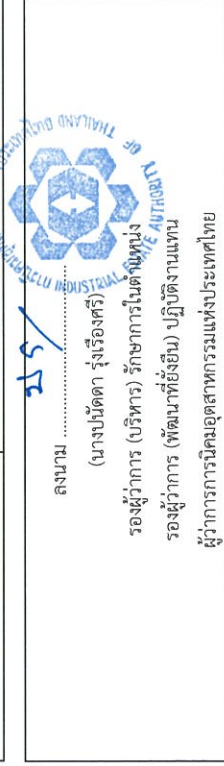 ลงนาม ........................................
(นางปนัดดา รุ่งเรืองศรี)
รองผู้ว่าการ (บริหาร) รักษาการในตำแหน่ง
รองผู้ว่าการ (พัฒนาที่ยั่งยืน) ปฏิบัติงานแทน
ผู้ว่าการการนิคมอุตสาหกรรมแห่งประเทศไทย
INDUSTRIAL ESTATE AUTHORITY OF THAILAND